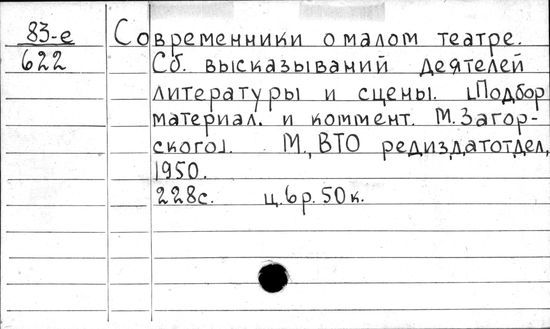 83-е Современники о малом театре.
622 Сб. высказываний деятелей
литературы и сцены. [Подбор
материал. и коммент. М. Загор-
ского]. М., ВТО редиздатотдел,
1950.
228с. ц. 6 р. 50 к.